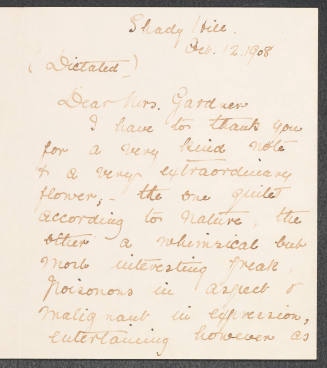 Shady Hill.
Feb. 12. 1908
(Dictated—)
Dear Mrs. Gardner
I have to thank you
for a very kind note
& a very extraordinary
flower, – the one quite
according to nature, the
other a whimsical but
most interesting freak
poisonous in aspect &
malignant in expression,
entertaining however as